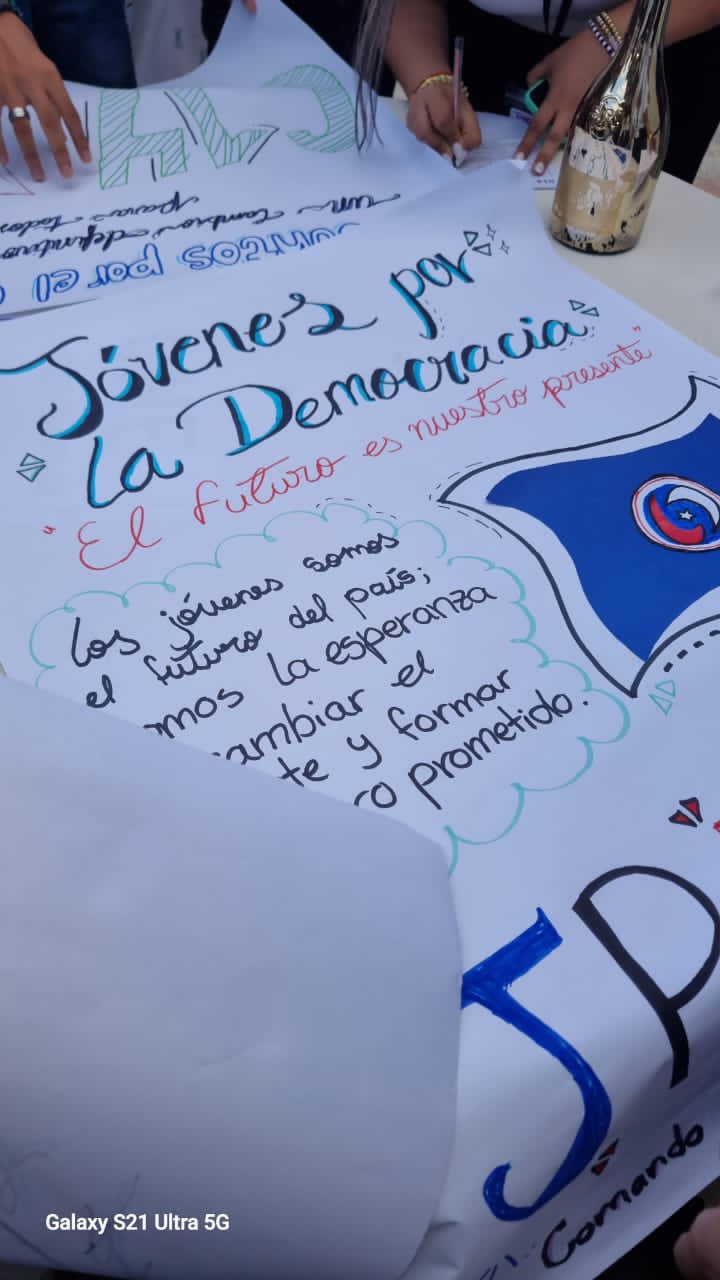 Jóvenes por
la Democracia
"El futuro es nuestro presente"
Los jóvenes somos
el futuro del país;
mos la esperanza
ambiar el
te y formar
ro prometido.
JP
Comando
un cambio definitivo
para todos
por el
Galaxy S21 Ultra 5G